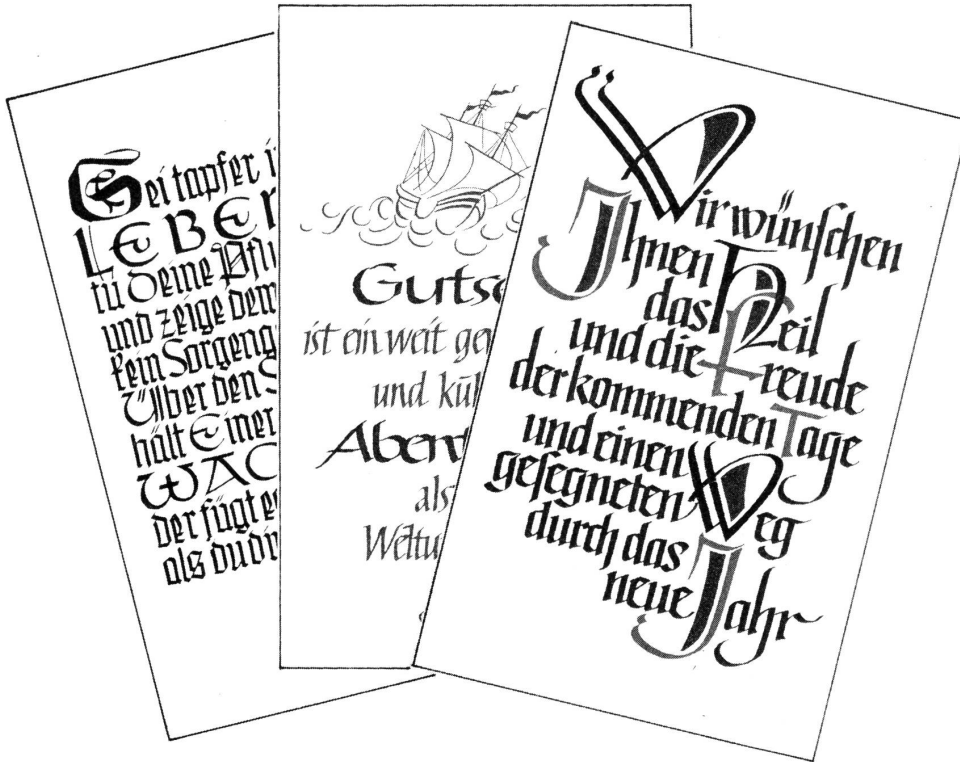 Sei tapfer i
LEBEN
tu deine Pfli
und zeige dem
kein Sorgeng
Über den S
hält Einer
WAC
der fügt es
als du dir
Gutse
ist ein weit ge
und küh
Abent
als
Weltu
Wir wünschen
Ihnen
das Heil
und die Freude
der kommenden Tage
und einen
gesegneten Weg
durch das
neue Jahr